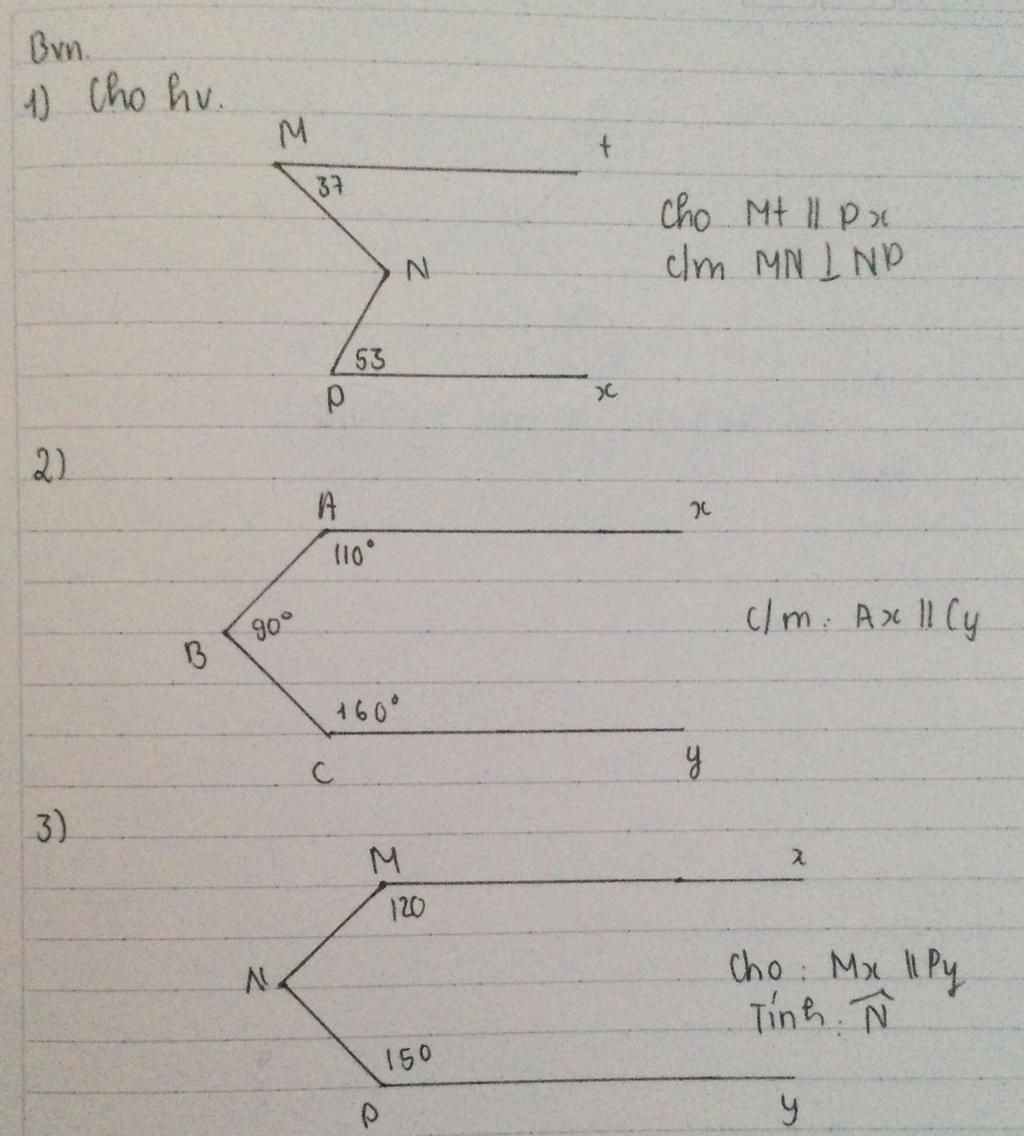 Bvn.
1) Cho hv.
M
t
37
Cho Mt || Px
c/m MN ⊥ NP
N
53
P
x
2)
A
x
110°
90°
B
c/m: Ax || Cy
160°
C
y
3)
M
x
120
N
Cho: Mx || Py
Tính: N̂
150
P
y